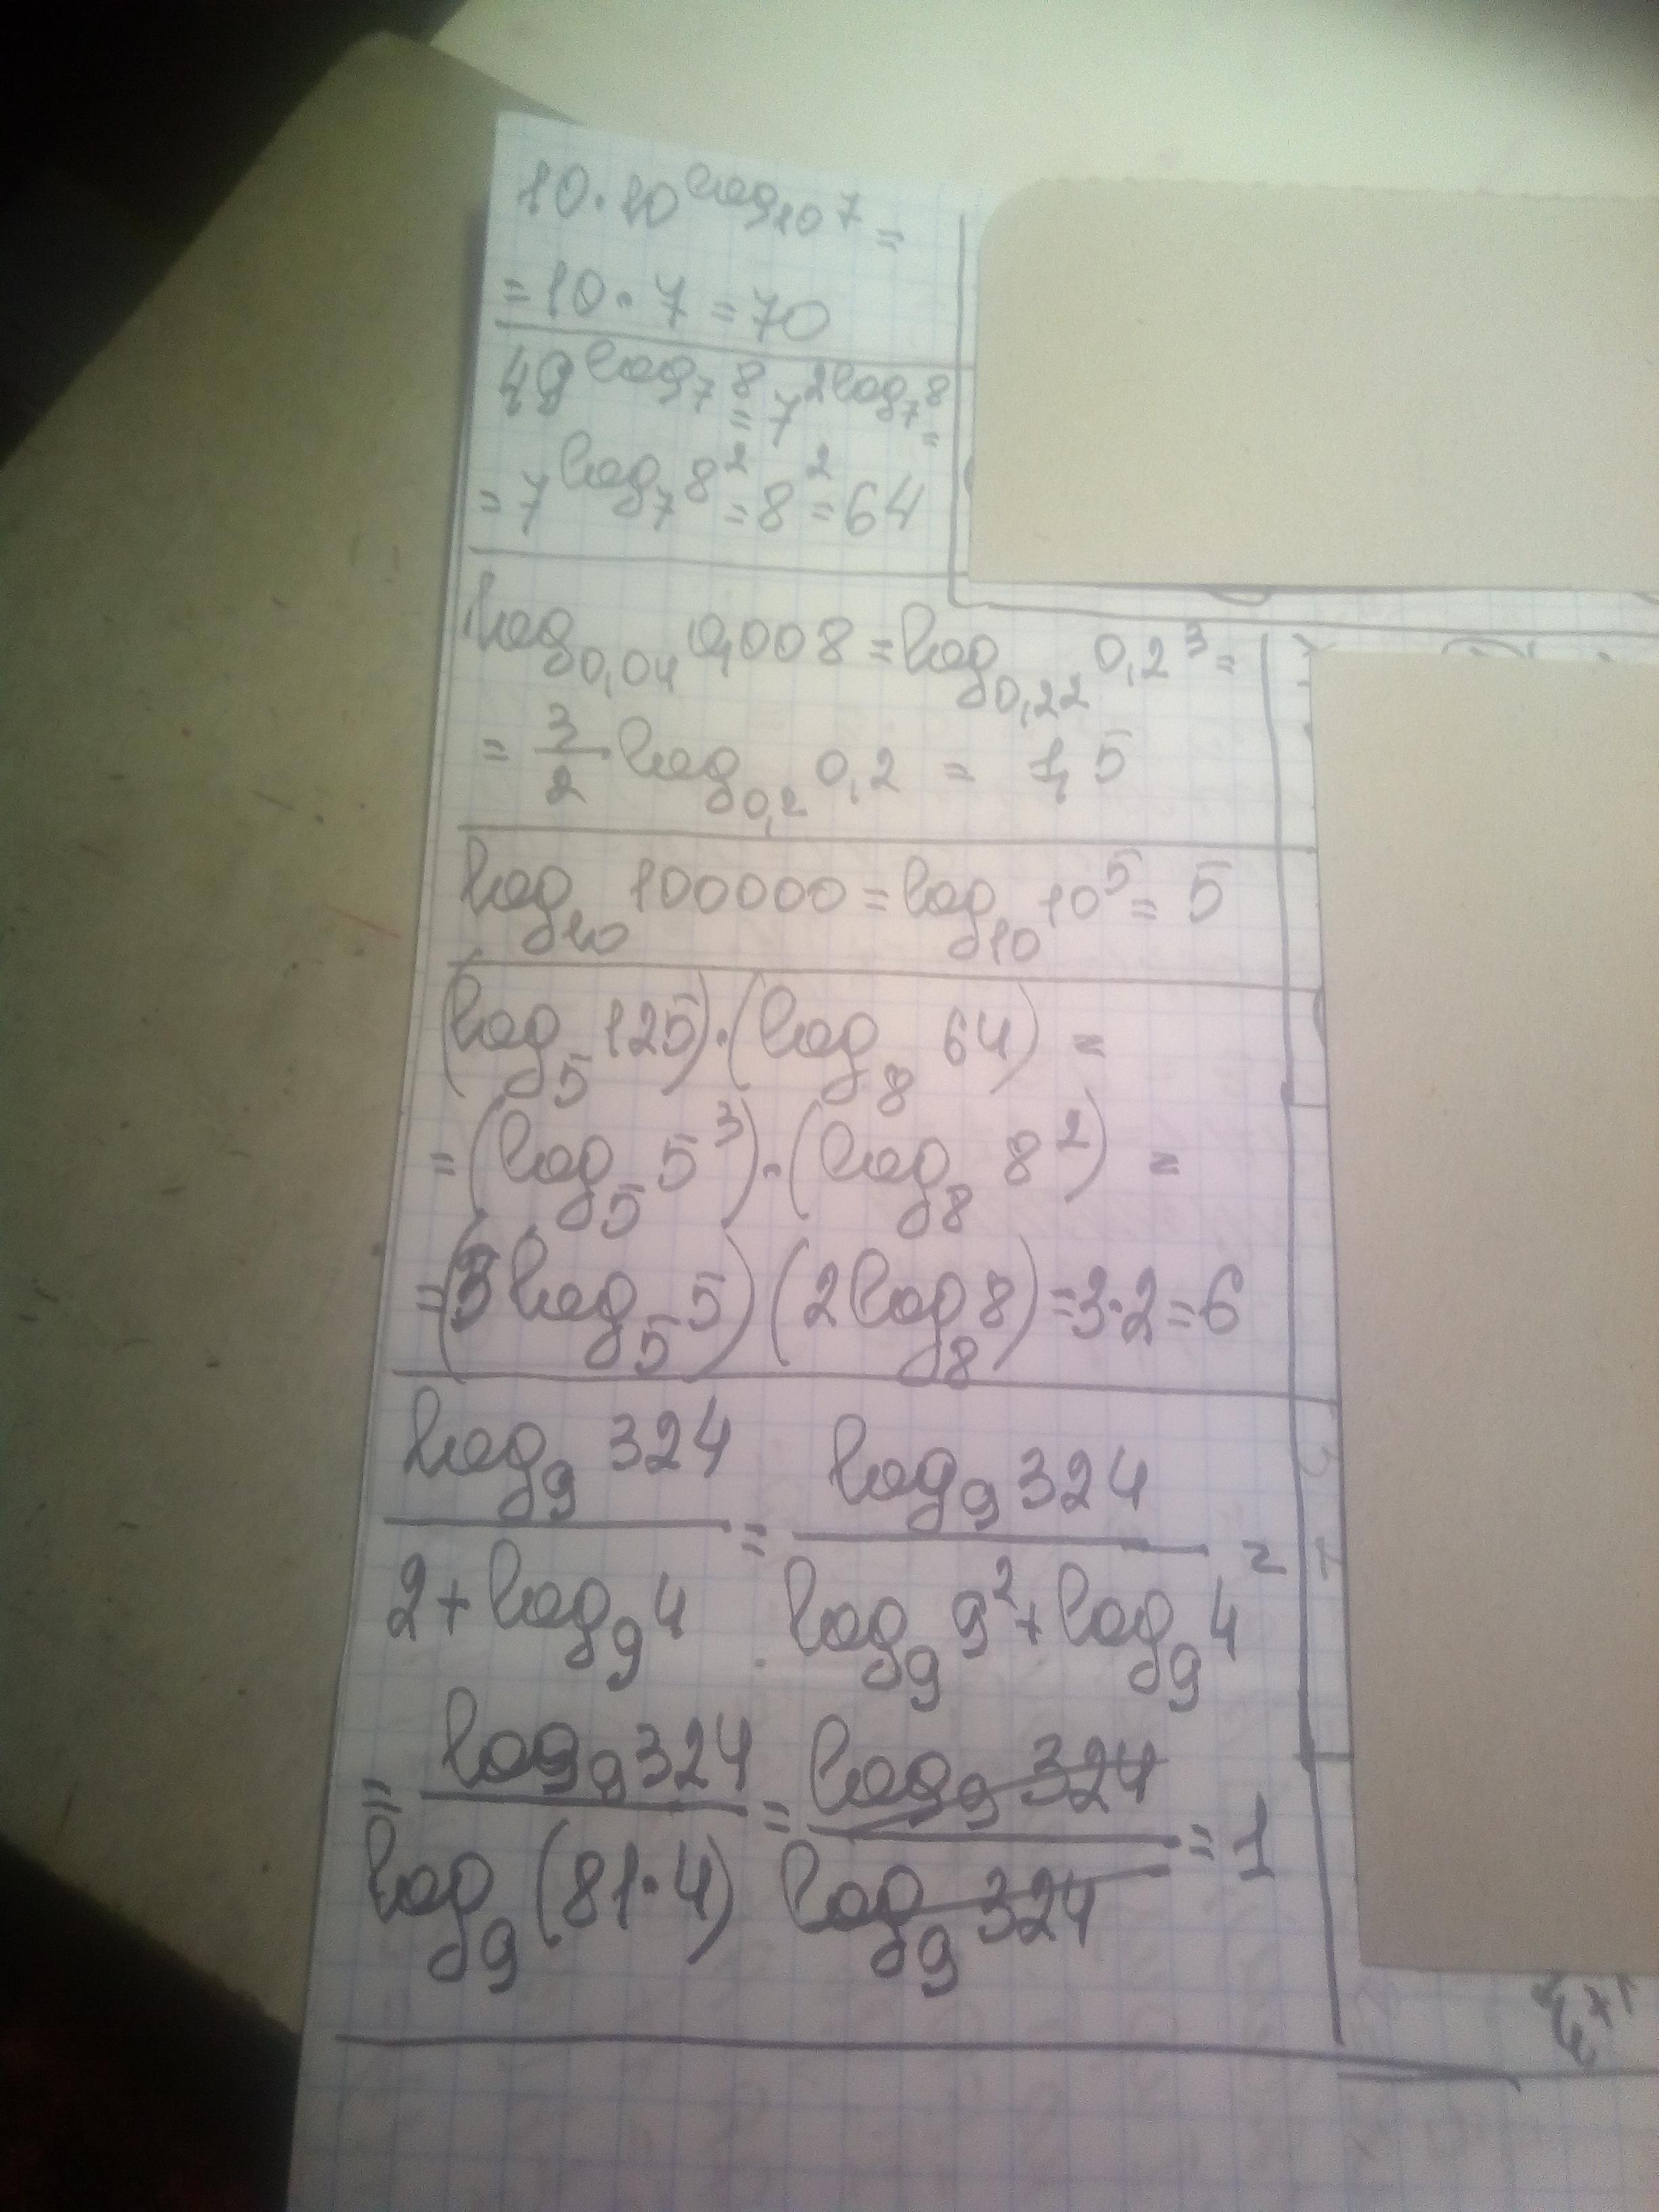 10·10^log₁₀7 =
= 10·7 = 70
49^log₇8 = 7^2log₇8 =
= 7^log₇8² = 8² = 64
log₀,₀₄ 0,008 = log₀,₂² 0,2³ =
= 3/2 log₀,₂ 0,2 = 1,5
log₁₀ 100000 = log₁₀ 10⁵ = 5
(log₅ 125)·(log₈ 64) =
= (log₅ 5³)·(log₈ 8²) =
= (3 log₅ 5)(2 log₈ 8) = 3·2 = 6
log₉ 324 / (2 + log₉ 4) = log₉ 324 / (log₉ 9² + log₉ 4) =
= log₉ 324 / log₉ (81·4) = log₉ 324 / log₉ 324 = 1